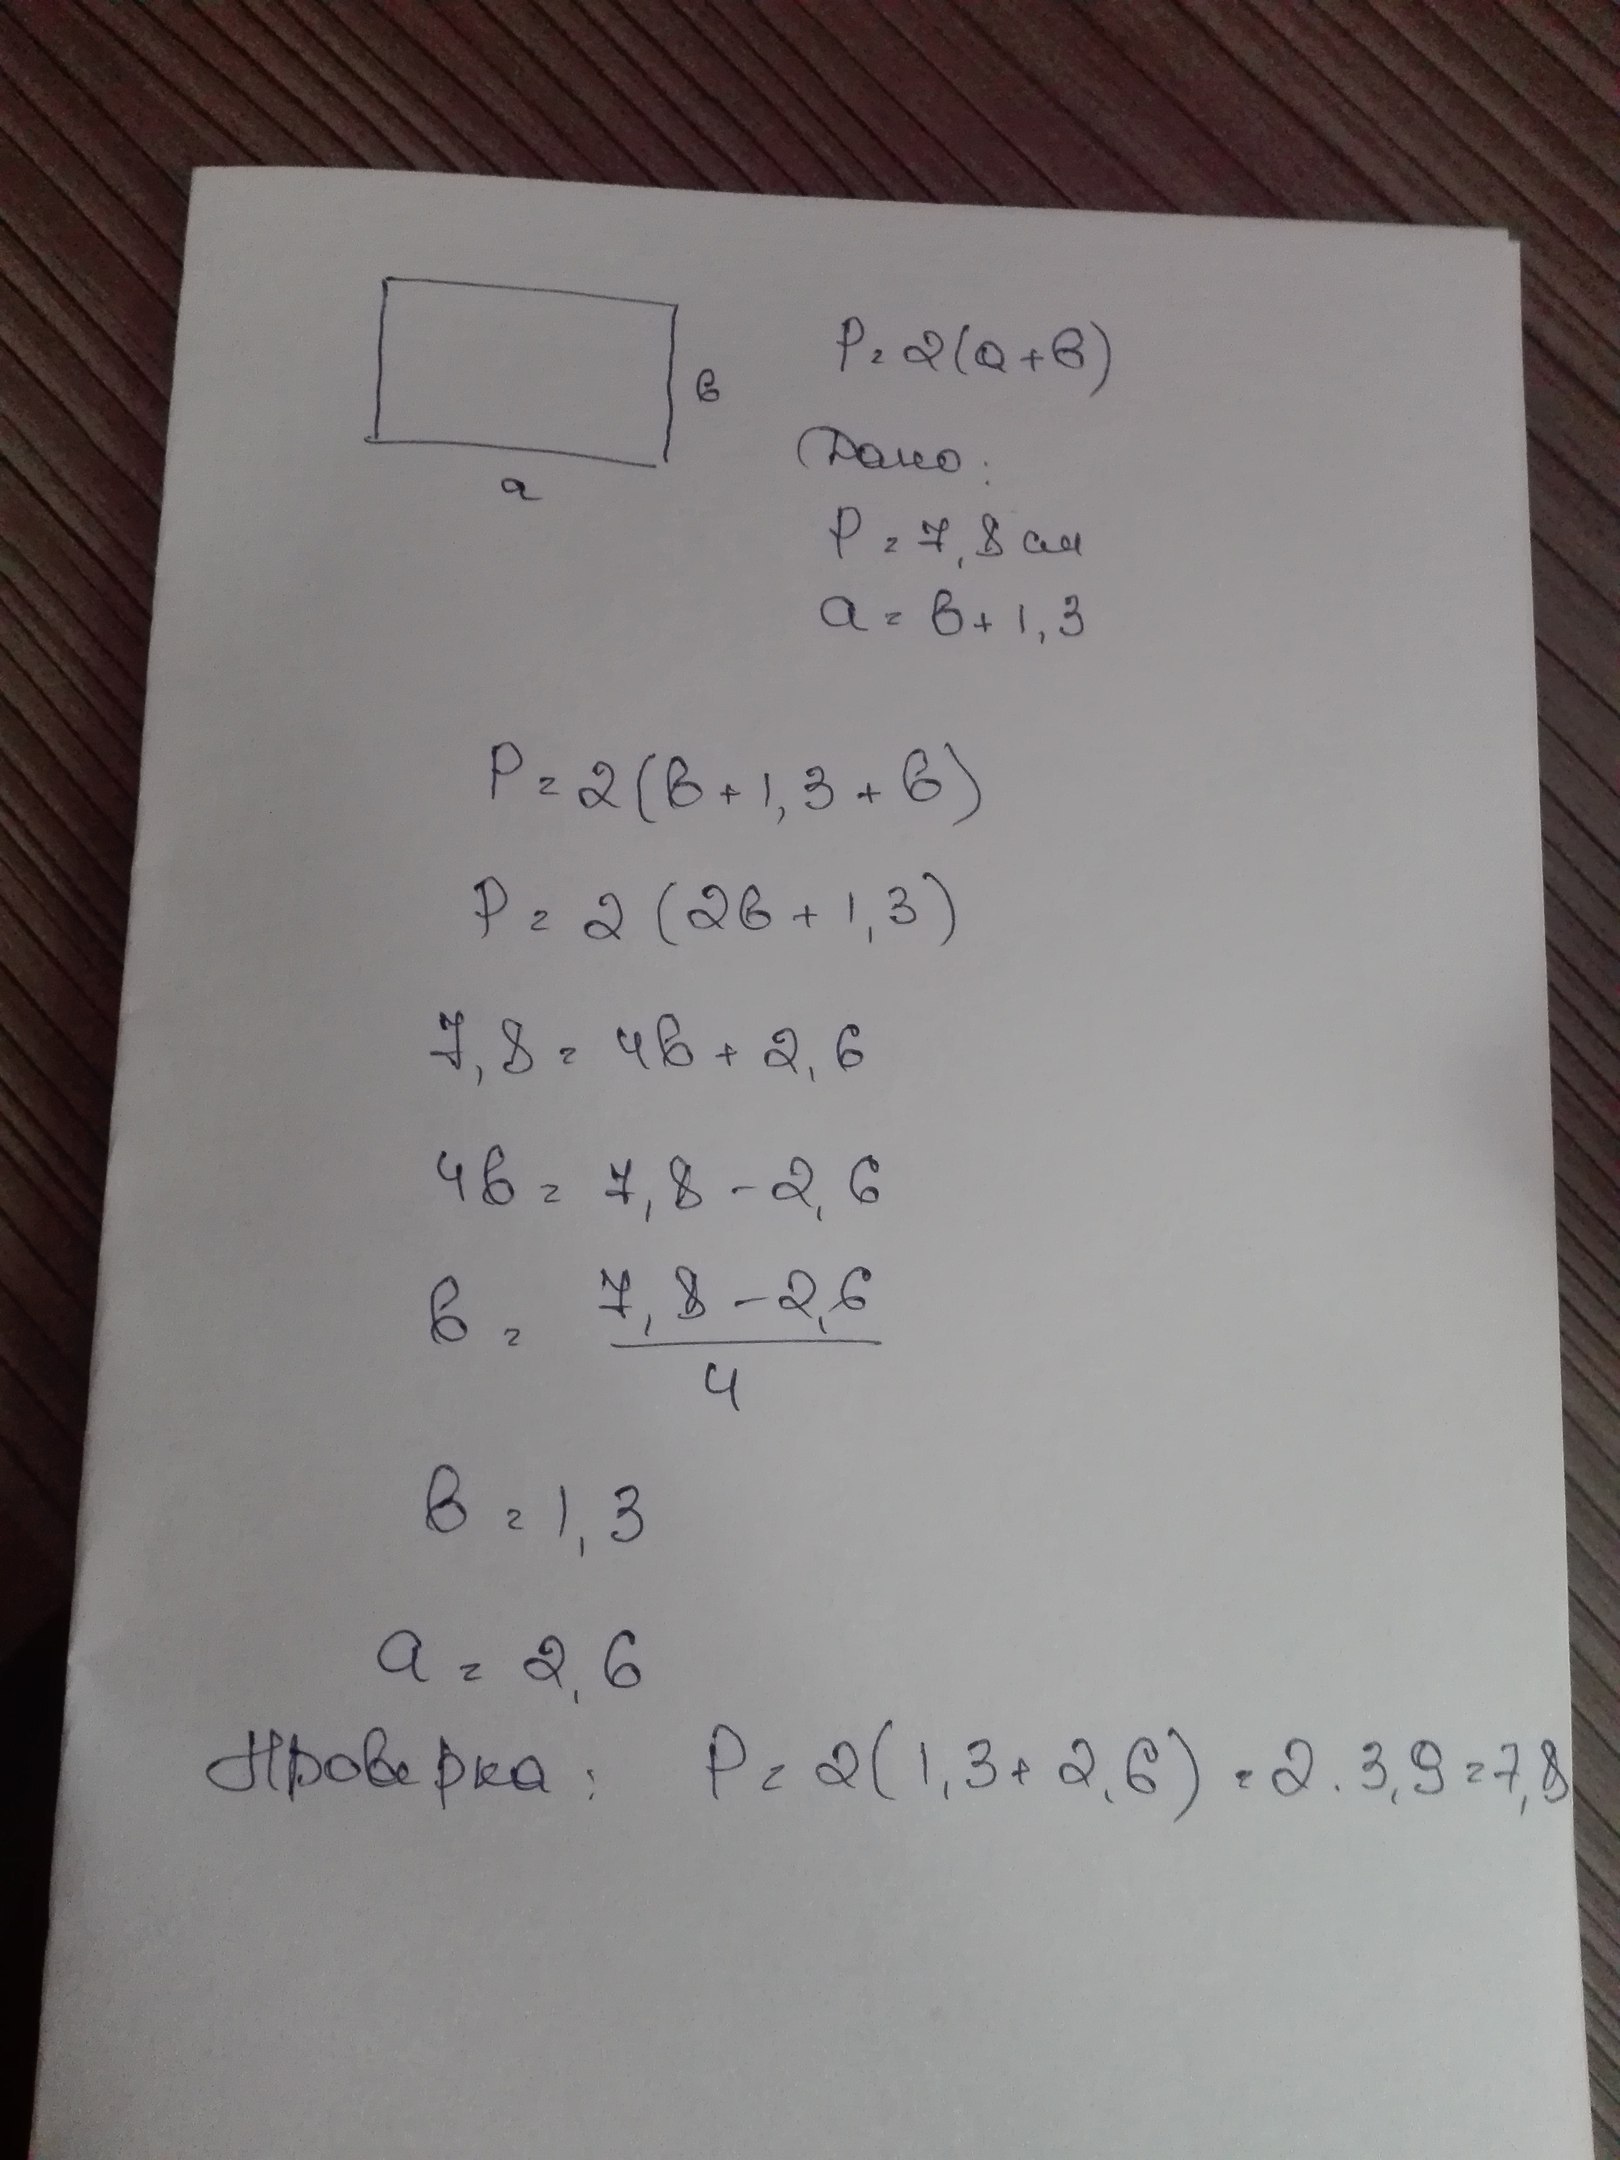 P = 2(a+в)
в
a
Дано:
P = 7,8 см
a = в + 1,3
P = 2(в + 1,3 + в)
P = 2(2в + 1,3)
7,8 = 4в + 2,6
4в = 7,8 - 2,6
в = 7,8 - 2,6
4
в = 1,3
a = 2,6
Проверка: P = 2(1,3 + 2,6) = 2 . 3,9 = 7,8